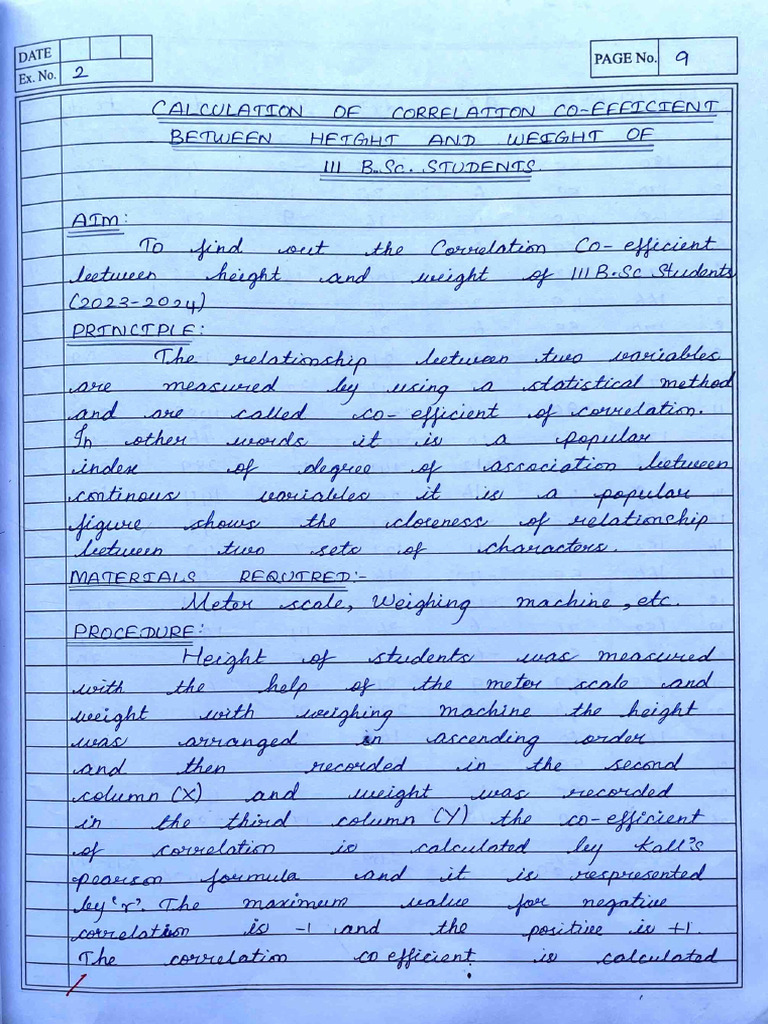 DATE
Ex. No. 2
PAGE No. 9
CALCULATION OF CORRELATION CO-EFFICIENT
BETWEEN HEIGHT AND WEIGHT OF
III B.Sc. STUDENTS.
AIM:
To find out the Correlation Co-efficient
between height and weight of III B.Sc Students
(2023-2024)
PRINCIPLE:
The relationship between two variables
are measured by using a statistical method
and are called co-efficient of correlation.
In other words it is a popular
index of degree of association between
continous variables it is a popular
figure shows the closeness of relationship
between two sets of characters.
MATERIALS REQUIRED:-
Meter scale, Weighing machine, etc.
PROCEDURE:
Height of students was measured
with the help of the meter scale and
weight with weighing machine the height
was arranged in ascending order
and then recorded in the second
column (X) and weight was recorded
in the third column (Y) the co-efficient
of correlation is calculated by Kall's
pearson formula and it is respresented
by 'r'. The maximum value for negative
correlation is -1 and the positive is +1.
The correlation co efficient is calculated